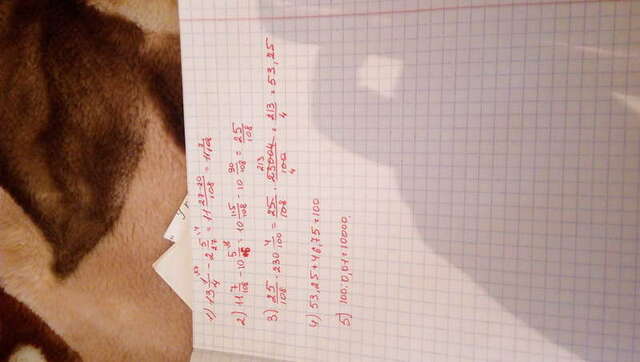 1) 13 1/4 - 2 5/27 = 11 27-20/108 = 11 7/108
2) 11 7/108 - 10 5/6 = 10 115/108 - 10 90/108 = 25/108
3) 25/108 · 230 4/100 = 25/108 · 23004/100 = 213/4 = 53,25
4) 53,25+46,75=100
5) 100:0,01=10000.